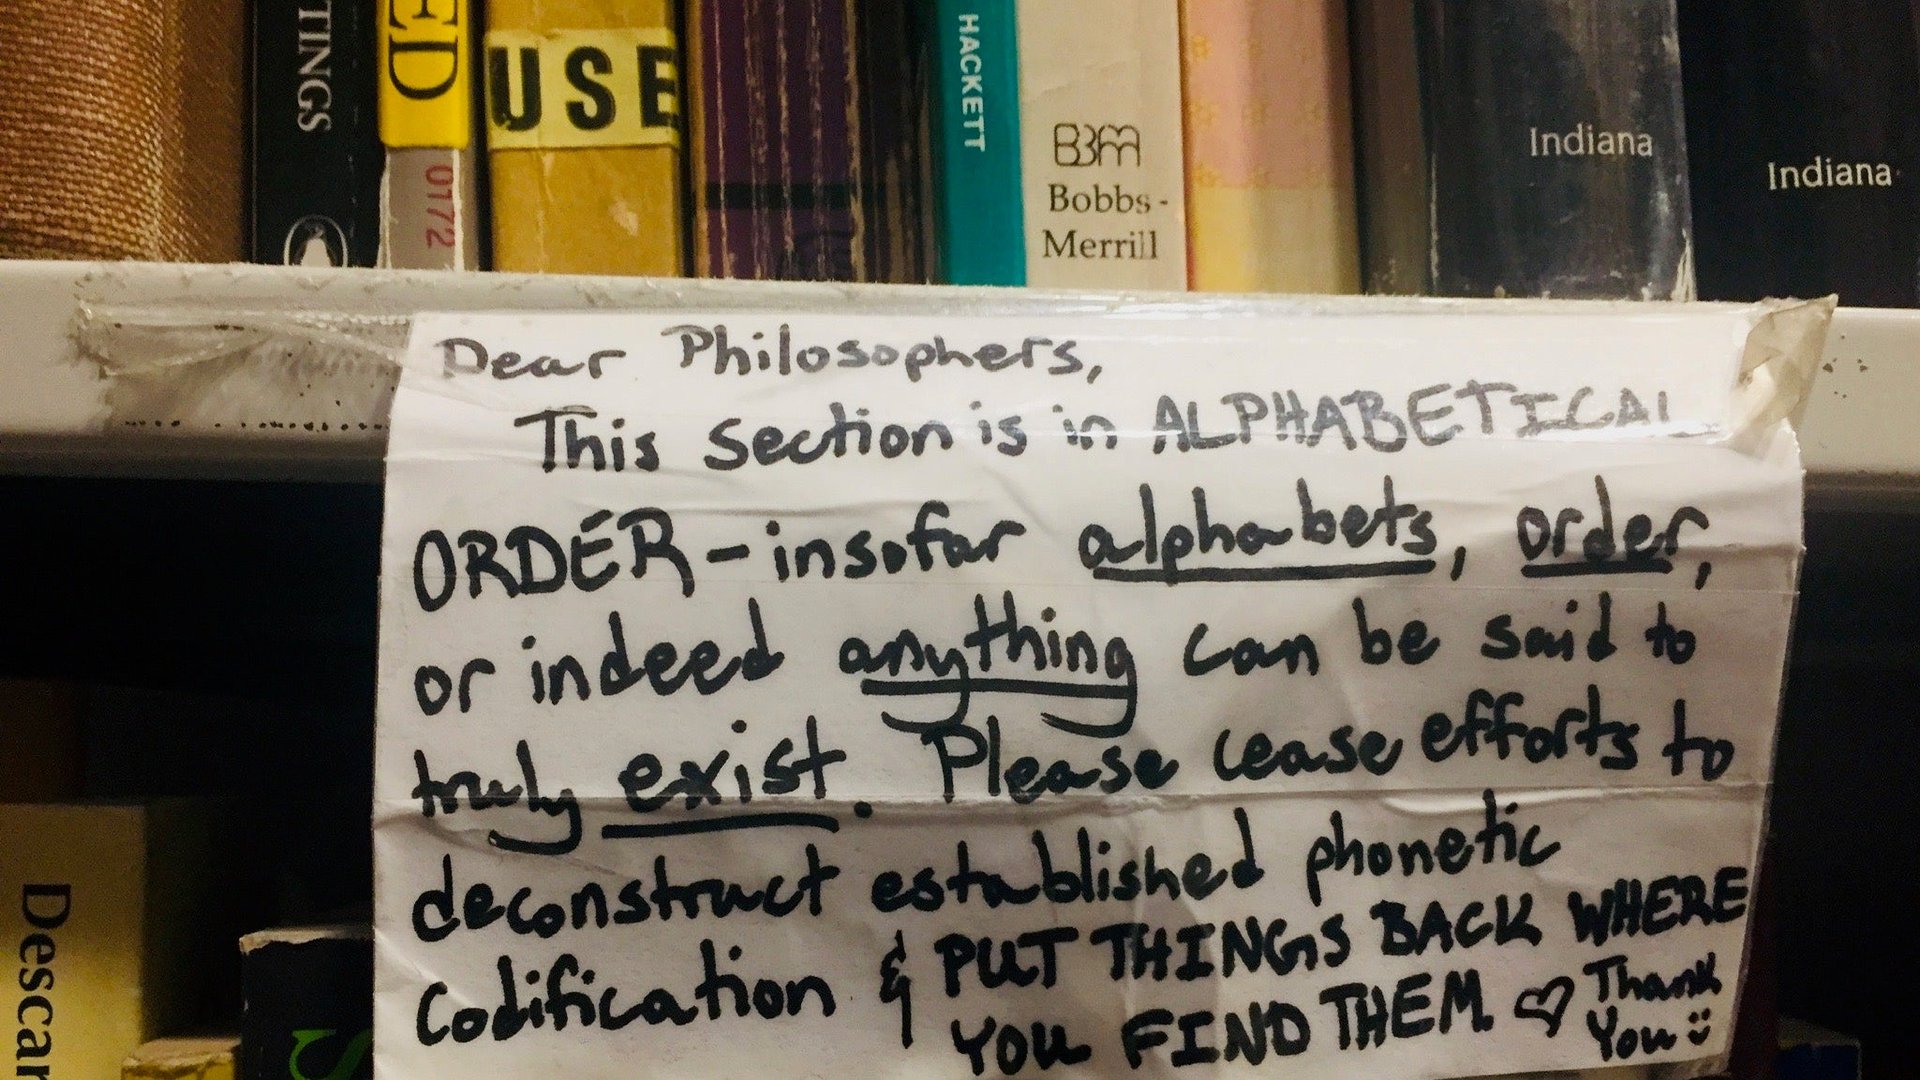 TINGS
ED
0172
USE
HACKETT
BBM
Bobbs-
Merrill
Indiana
Indiana
Dear Philosophers,
This section is in ALPHABETICAL
ORDER - insofar alphabets, order,
or indeed anything can be said to
truly exist. Please cease efforts to
deconstruct established phonetic
Codification & PUT THINGS BACK WHERE
YOU FIND THEM. ♡ Thank
You :)
Descar
S